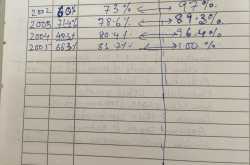 2002 60% 73% ↔ 97%
2003 71.4% 78.6% ↔ 89.3%
2004 80.4% ↔ 96.4%
2005 ↔ 100%